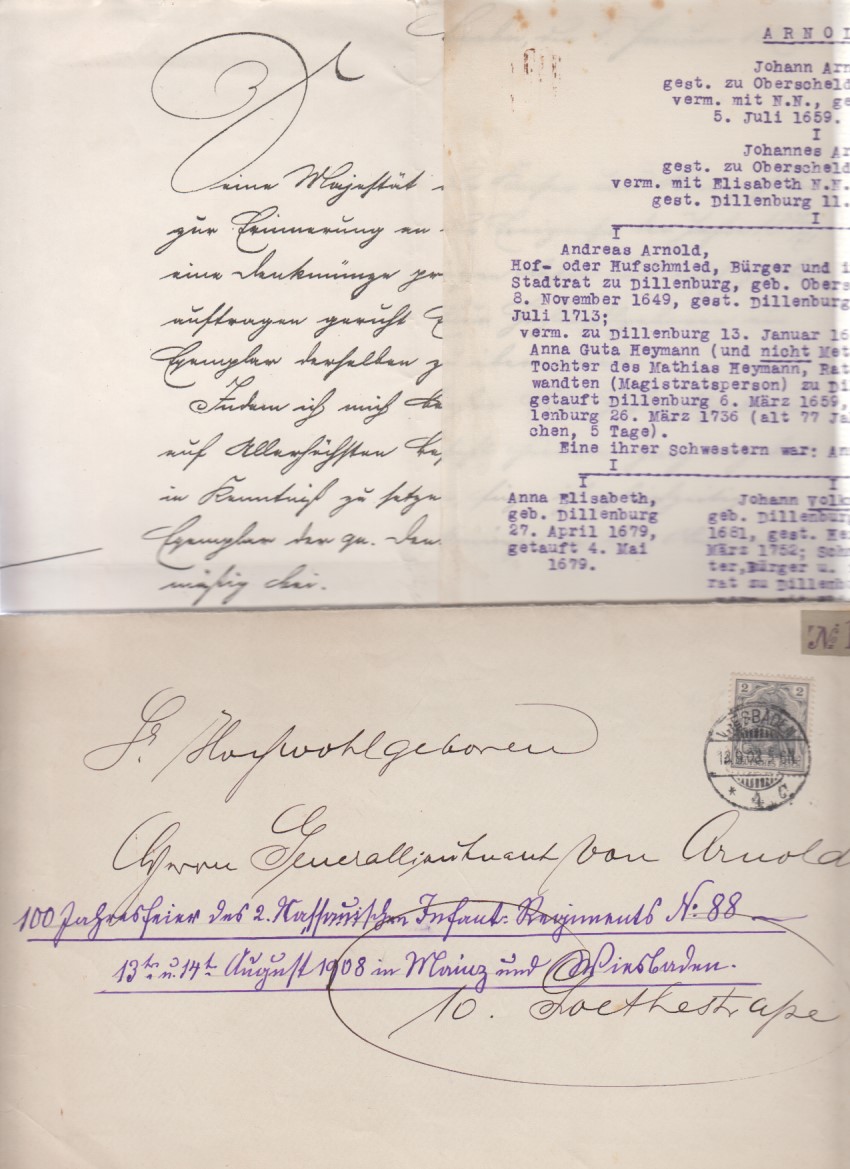 Seine Majestät
zur Erinnerung an
eine Denkmünze
auftragen geruht
Exemplar derselben
Indem ich mich
auf Allerhöchsten
in Kenntniß zu setze
Exemplar der qu. Den
mäßig bei.
ARNOL
Johann Arn
gest. zu Oberscheld
verm. mit N.N., ge
5. Juli 1659.
I
Johannes Ar
gest. zu Oberscheld
verm. mit Elisabeth N.N.
gest. Dillenburg 11.
I
I
Andreas Arnold,
Hof- oder Hufschmied, Bürger und i
Stadtrat zu Dillenburg, geb. Obers
8. November 1649, gest. Dillenburg
Juli 1713;
verm. zu Dillenburg 13. Januar 16
Anna Guta Heymann (und nicht Met
Tochter des Mathias Heymann, Rat
wandten (Magistratsperson) zu Di
getauft Dillenburg 6. März 1659,
lenburg 26. März 1736 (alt 77 Ja
chen, 5 Tage).
Eine ihrer Schwestern war: An
I
I I
Anna Elisabeth,
geb. Dillenburg
27. April 1679,
getauft 4. Mai
1679.
Johann Volk
geb. Dillenburg
1681, gest. He
März 1752; Sch
ter, Bürger u.
rat zu Dillenb
№ 1
2 2
WIESBADEN
* 4 C
Sr. Hochwohlgeboren
Herrn Generallieutnant von Arnold
100 Jahresfeier des 2. Nassauischen Infant: Regiments N: 88
13ter u. 14t. August 1908 in Mainz und Wiesbaden.
10. Goethestraße